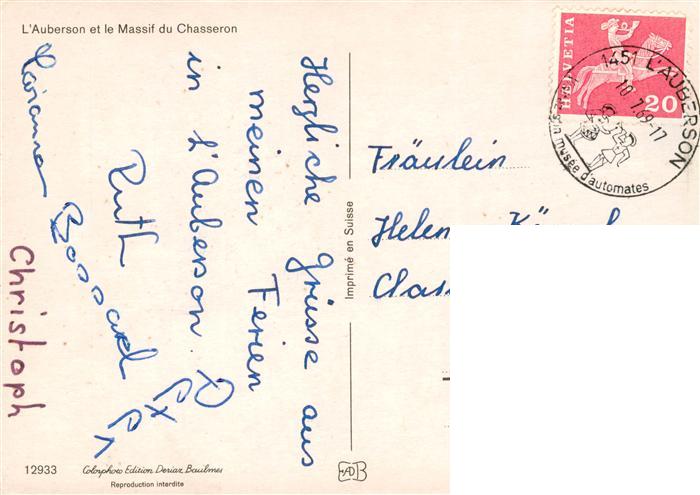 L'Auberson et le Massif du Chasseron
Herzliche Grüsse aus
meinen Ferien
in l'Auberson.
Ruth
Bossard
Christoph
Imprimé en Suisse
HELVETIA
20
1451 L'AUBERSON
10.7.69-17
musée d'automates
Fräulein
12933
Colorphoto Edition Deriaz Baulmes
Reproduction interdite